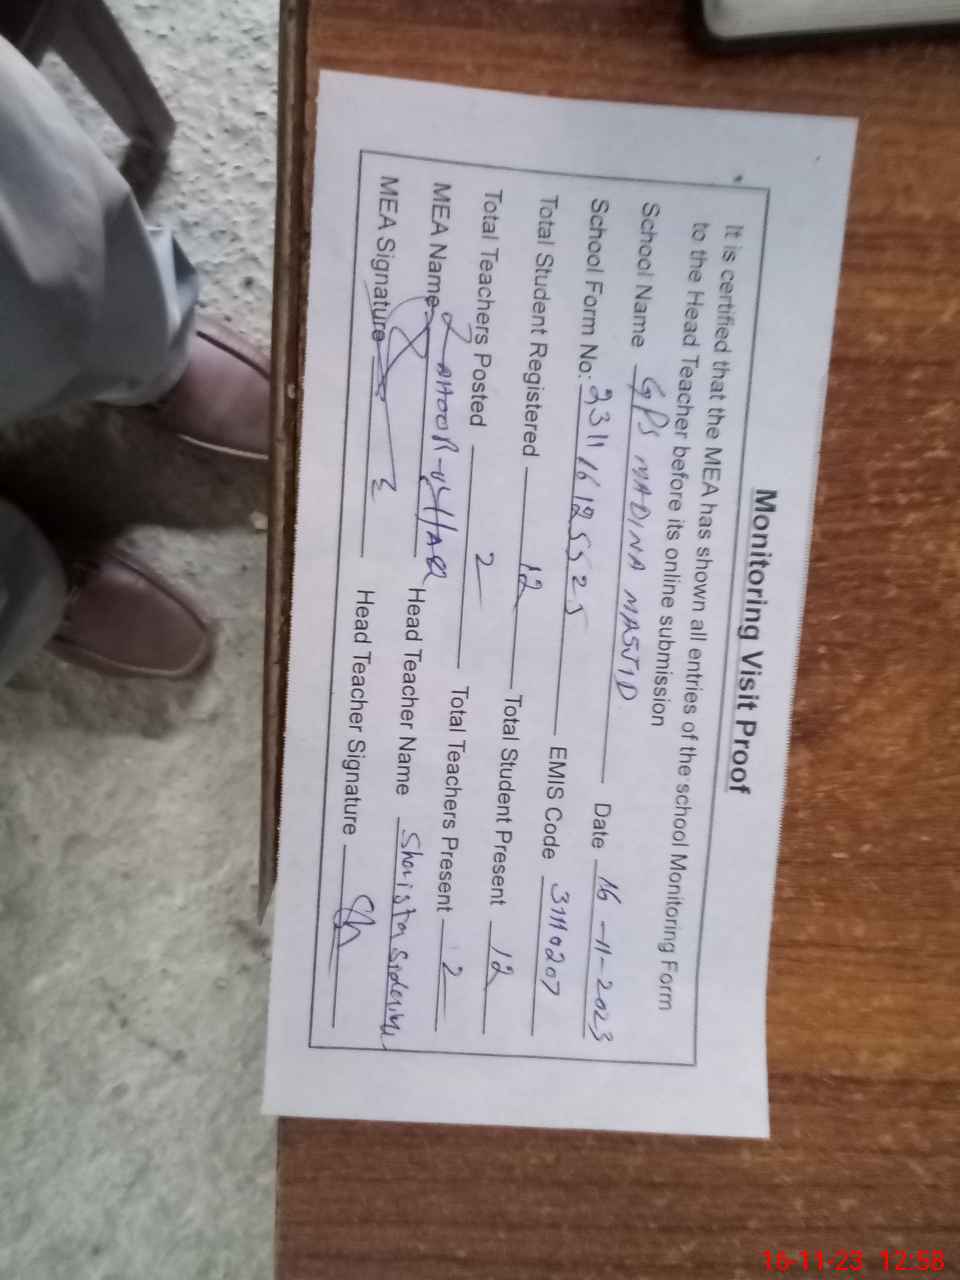 Monitoring Visit Proof
It is certified that the MEA has shown all entries of the school Monitoring Form
to the Head Teacher before its online submission
School Name GPS MADINA MASJID Date 16-11-2023
School Form No: 231116125525 EMIS Code 31110207
Total Student Registered 12 Total Student Present 12
Total Teachers Posted 2 Total Teachers Present 2
MEA Name ZAHOOR-UL-HAQ Head Teacher Name Shaista
MEA Signature Head Teacher Signature
16-11-23 12:58